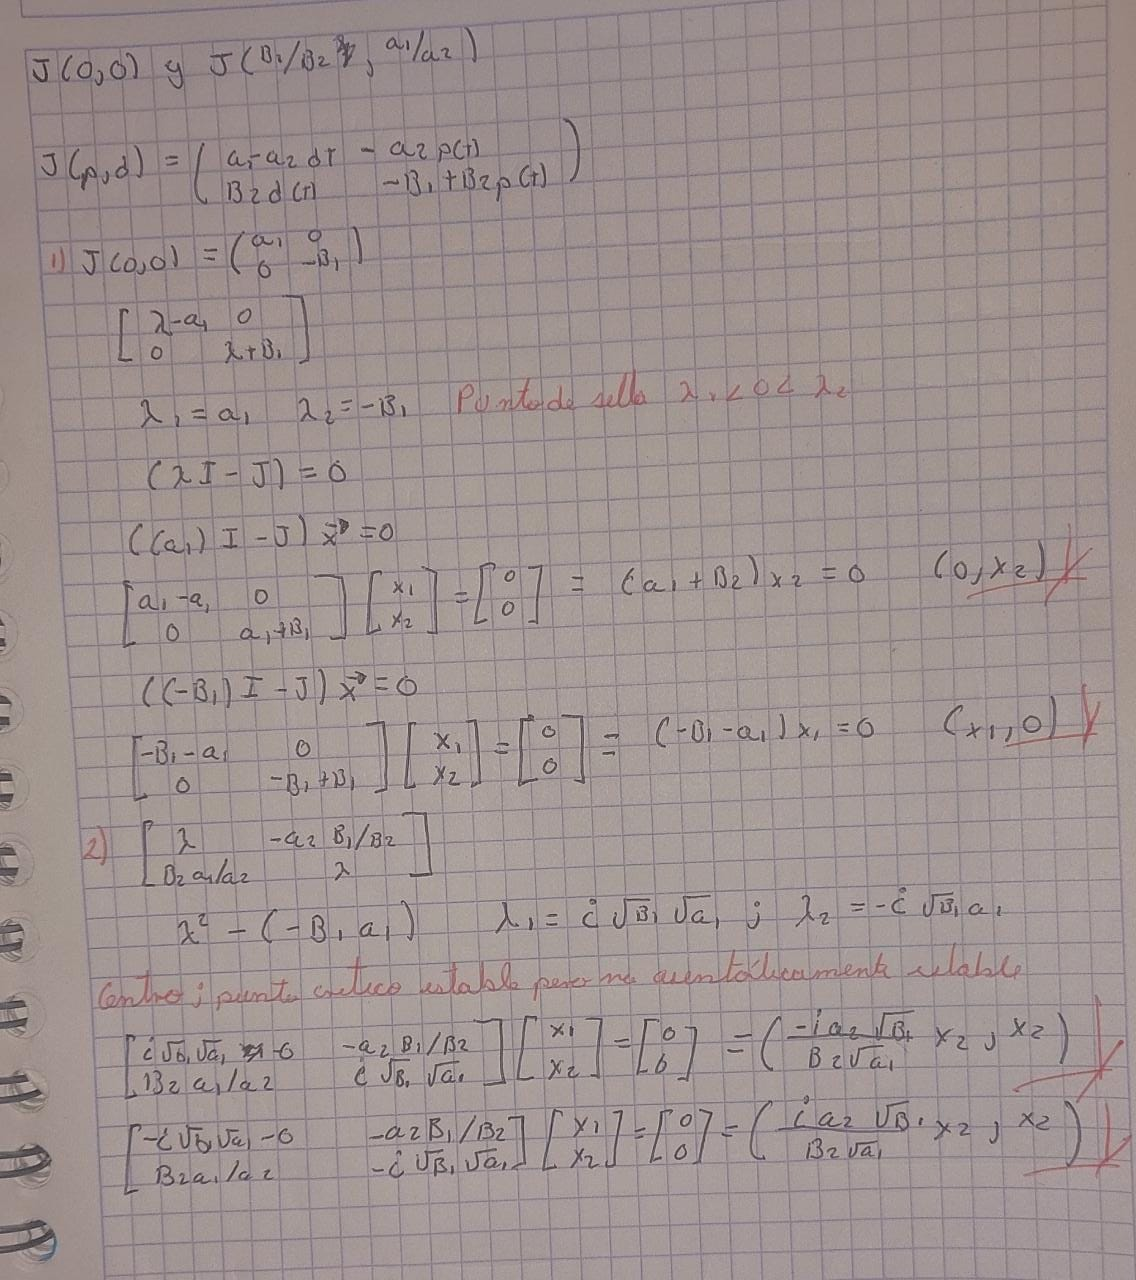 J(0,0) y J(B1/B2, a1/a2)
J(p,d) = ( a1-a2 dt - a2 p(t)
B2 d(t) -B1+B2 p(t) )
1) J(0,0) = ( a1 0
0 -B1 )
[ λ-a1 0
0 λ+B1 ]
λ1 = a1 λ2 = -B1 Punto de silla λ1 < 0 < λ2
(λI - J) = 0
((a1) I - J) x⃗ = 0
[ a1-a1 0
0 a1+B1 ] [ x1
x2 ] = [ 0
0 ] = (a1 + B2) x2 = 0 (0, x2)
((-B1) I - J) x⃗ = 0
[ -B1-a1 0
0 -B1+B1 ] [ x1
x2 ] = [ 0
0 ] = (-B1-a1) x1 = 0 (x1, 0)
2) [ λ -a2 B1/B2
B2 a1/a2 λ ]
λ² - (-B1 a1) λ1 = i √B1 √a1 ; λ2 = -i √B1 a1
Centro; punto critico estable pero no asentoticamente estable
[ i√B1 √a1 -0 -a2 B1/B2
B2 a1/a2 i √B1 √a1 ] [ x1
x2 ] = [ 0
0 ] = ( -i a2 √B1 / B2 √a1 x2, x2 )
[ -i √B1 √a1 -0 -a2 B1/B2
B2 a1/a2 -i √B1 √a1 ] [ x1
x2 ] = [ 0
0 ] = ( i a2 √B1 / B2 √a1 x2, x2 )